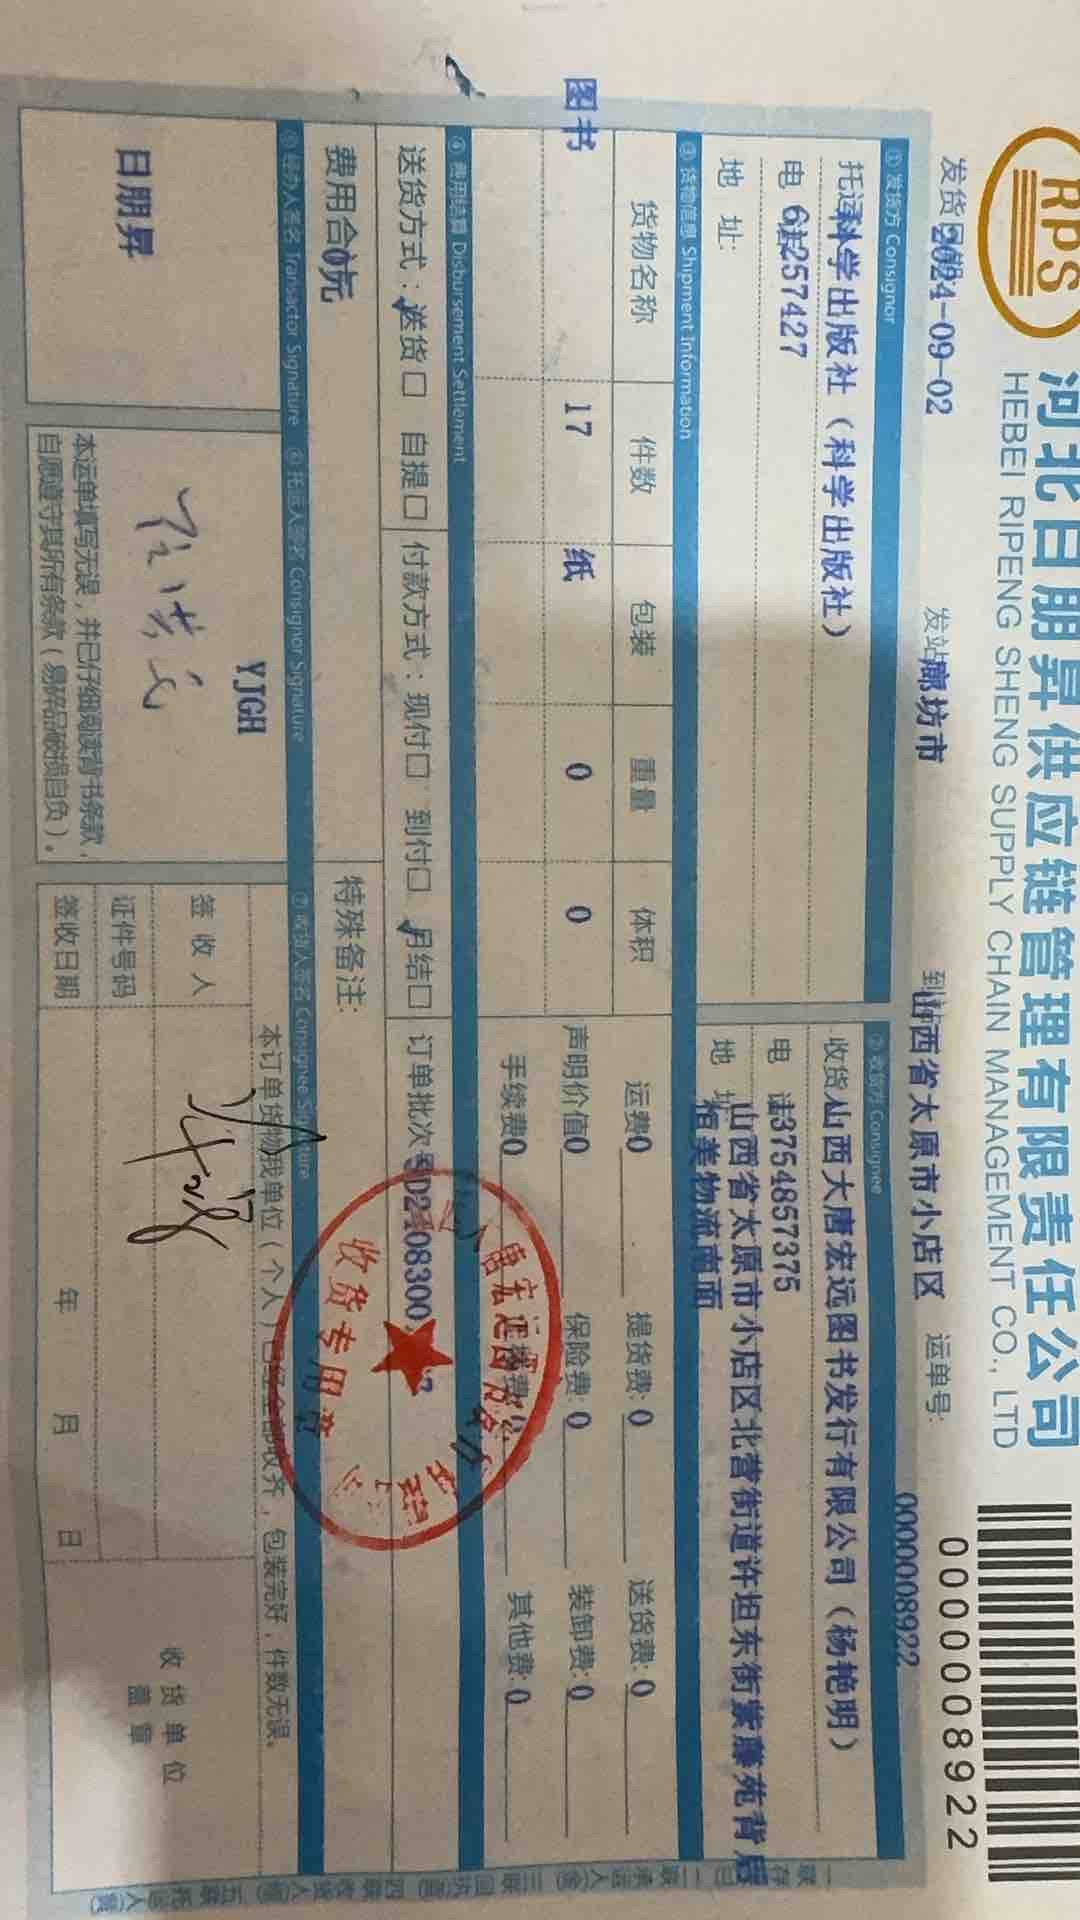 RPS
河北日朋昇供应链管理有限责任公司
HEBEI RIPENG SHENG SUPPLY CHAIN MANAGEMENT CO., LTD
0000008922
发货 2024-09-02 发站 廊坊市 到 山西省太原市小店区 运单号: 0000008922
① 发货方 Consignor
托运 科学出版社(科学出版社)
电 61257427
地 址:
② 收货方 Consignee
收货 山西大唐宏远图书发行有限公司(杨艳明)
电 13754857375
地 址 山西省太原市小店区北营街道许坦东街紫藤苑背后
相美物流南面
③ 货物信息 Shipment Information
货物名称 件数 包装 重量 体积
图书 17 纸 0 0
运费0 提货费: 0 送货费: 0
声明价值0 保险费: 0 装卸费: 0
手续费0 其他费: 0
④ 费用结算 Disbursement Settlement
送货方式: 送货□ 自提□ 付款方式: 现付□ 到付□ 月结□ 订单批次
费用合 0元 特殊备注:
收货专用章
⑤ 经办人签名 Transactor Signature ⑥ 托运人签名 Consignor Signature ⑦ 收货人签名 Consignee Signature
日朋昇
YJGH
本运单填写无误,并已仔细阅读背书条款,
自愿遵守其所有条款(易碎品破损自负)。
本订单货物我单位(个人)已经全部收齐,包装完好,件数无误。
签 收 人
证件号码
签收日期 年 月 日
收 货 单 位
盖 章